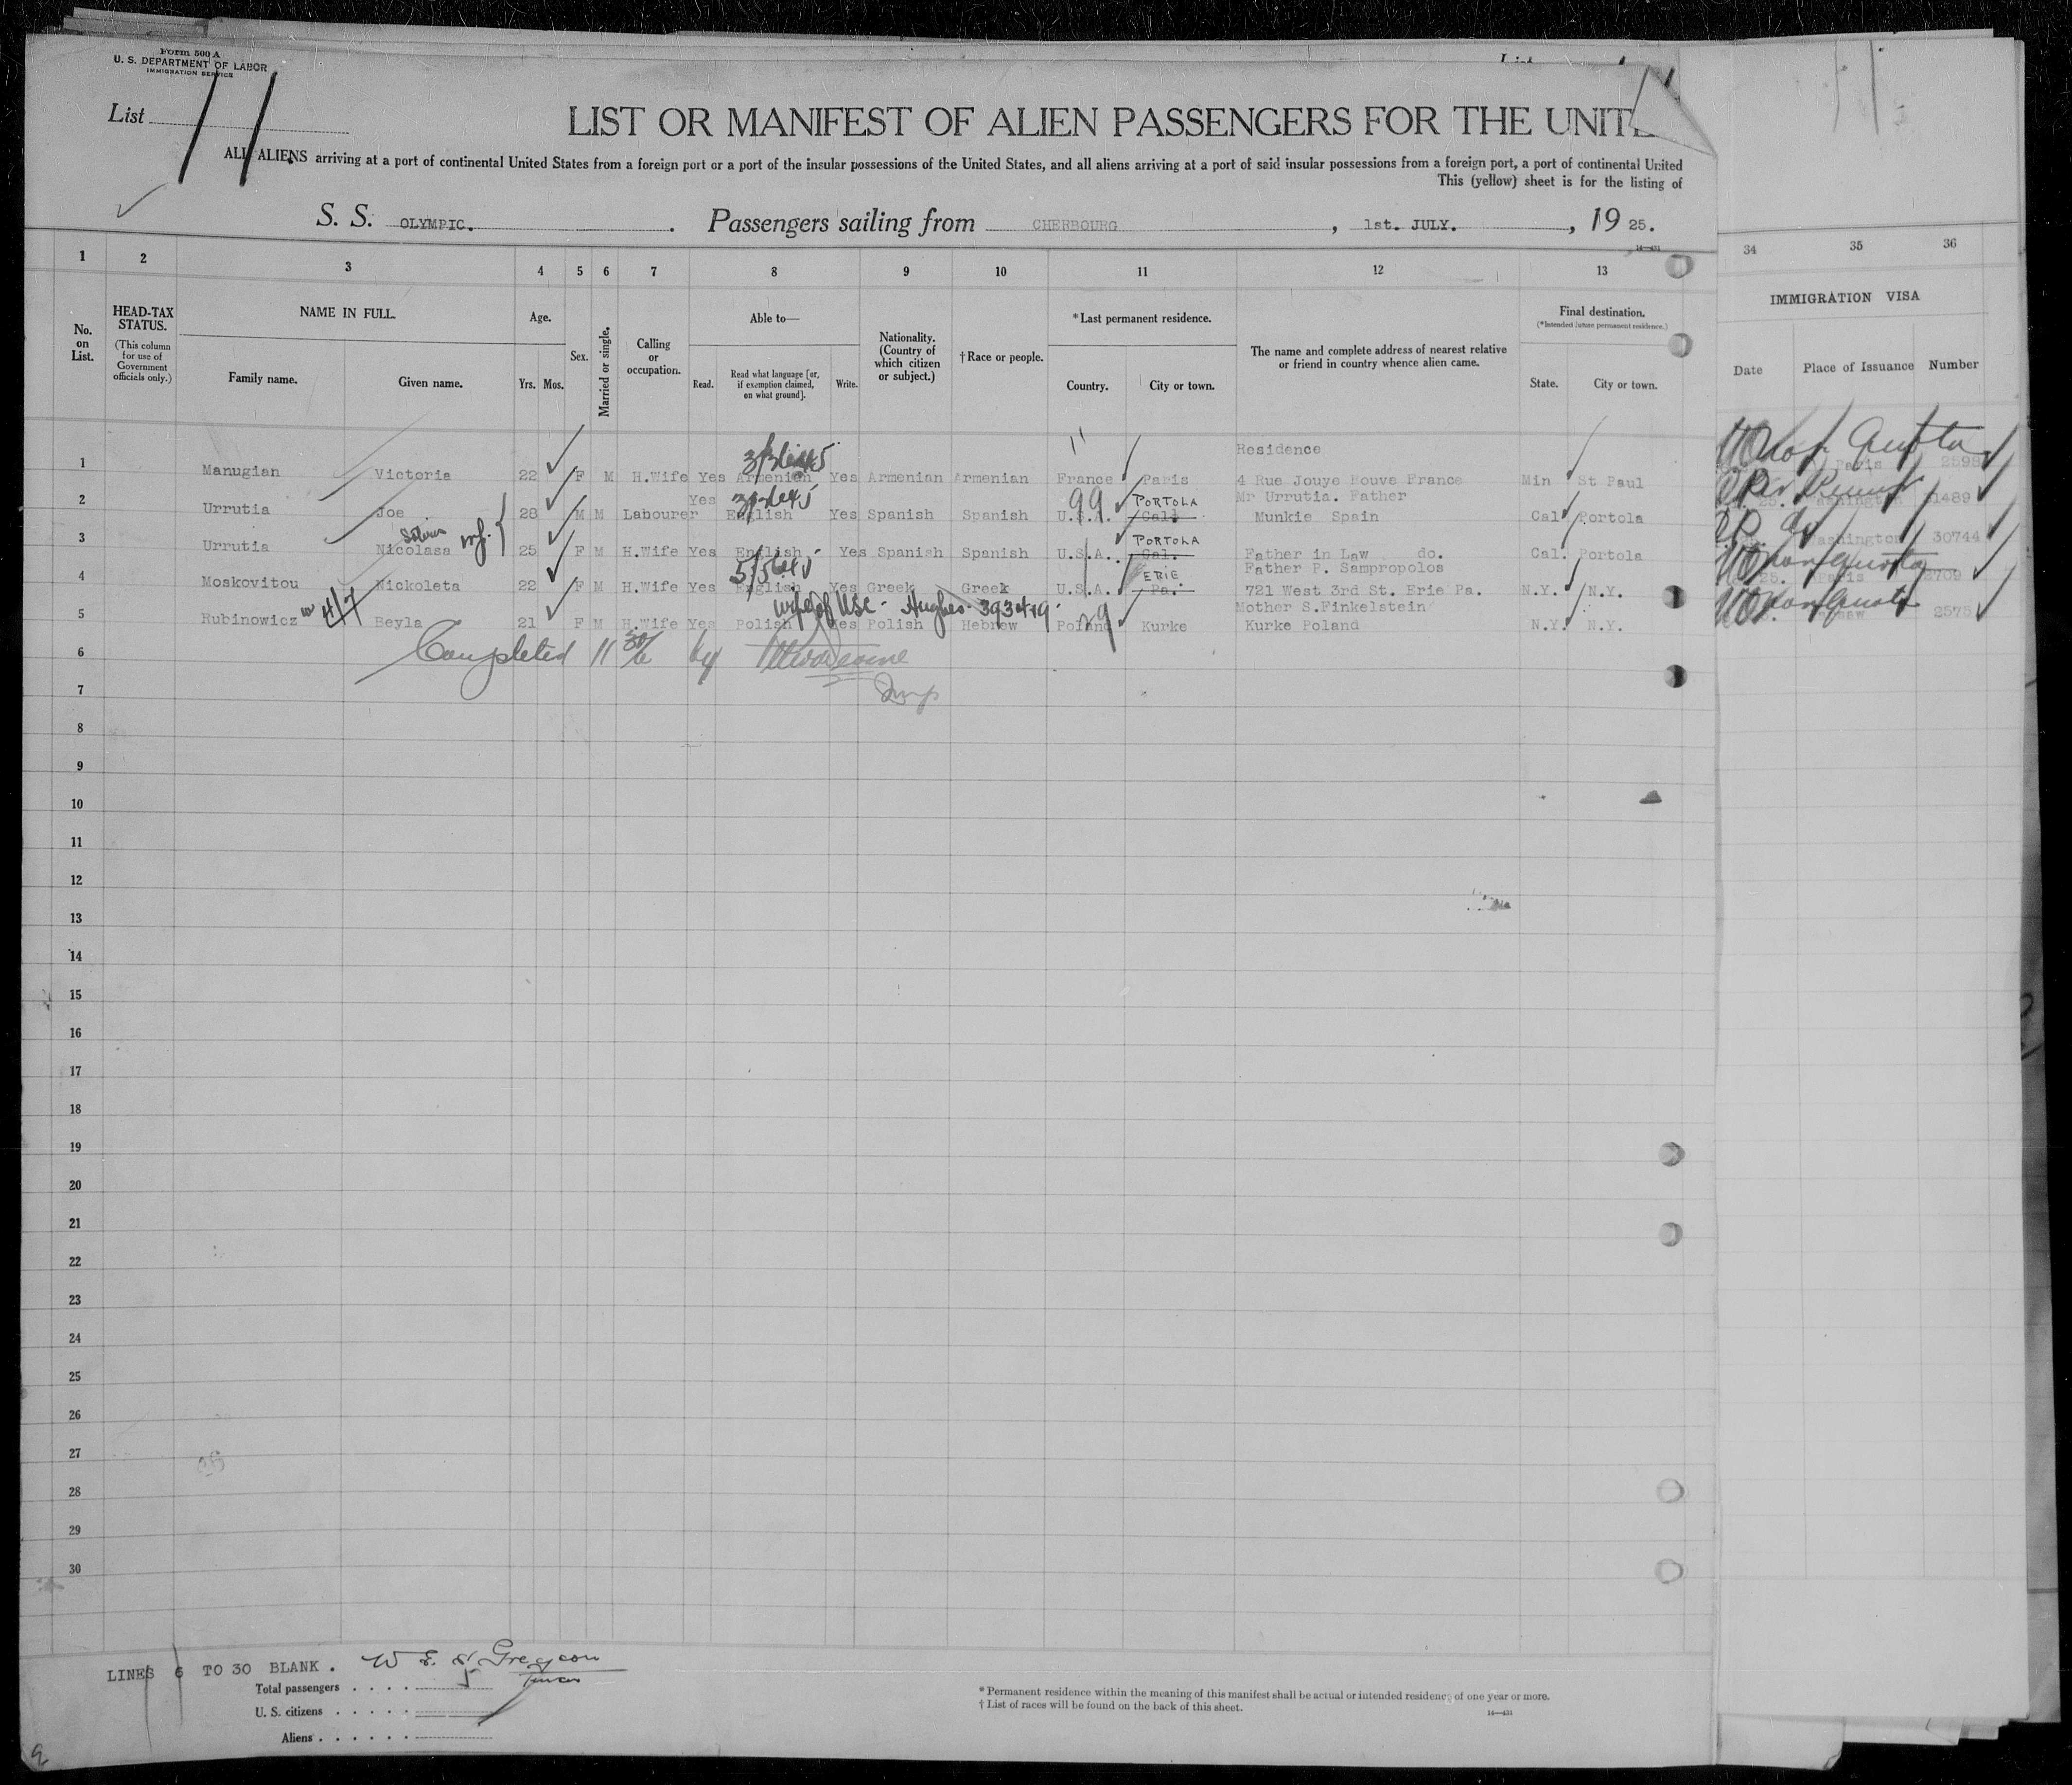 Form 500 A
U. S. DEPARTMENT OF LABOR
IMMIGRATION SERVICE
List 11
LIST OR MANIFEST OF ALIEN PASSENGERS FOR THE UNIT
ALL ALIENS arriving at a port of continental United States from a foreign port or a port of the insular possessions of the United States, and all aliens arriving at a port of said insular possessions from a foreign port, a port of continental United
This (yellow) sheet is for the listing of
S. S. OLYMPIC. Passengers sailing from CHERBOURG, 1st. JULY., 1925.
14—431
1 2 3 4 5 6 7 8 9 10 11 12 13 34 35 36
No. on List.
HEAD-TAX STATUS.
(This column for use of Government officials only.)
NAME IN FULL
Family name. Given name.
Age.
Yrs. Mos.
Sex.
Married or single.
Calling or occupation.
Able to—
Read. Read what language [or, if exemption claimed, on what ground]. Write.
Nationality. (Country of which citizen or subject.)
†Race or people.
*Last permanent residence.
Country. City or town.
The name and complete address of nearest relative or friend in country whence alien came.
Final destination.
(*Intended future permanent residence.)
State. City or town.
IMMIGRATION VISA
Date Place of Issuance Number
Residence
1 Manugian Victoria 22 F M H.Wife Yes Armenian Yes Armenian Armenian France Paris 4 Rue Jouye Rouve France Min St Paul Paris 2598
Yes PORTOLA Mr Urrutia. Father
2 Urrutia Joe 28 M M Labourer English Yes Spanish Spanish U.S.A. Cal. Munkie Spain Cal Portola Washington 31489
PORTOLA
3 Urrutia Nicolasa wf. 25 F M H.Wife Yes English Yes Spanish Spanish U.S.A. Cal. Father in Law do. Cal. Portola Washington 30744
ERIE Father P. Sampropolos
4 Moskovitou Nickoleta 22 F M H.Wife Yes English Yes Greek Greek U.S.A. Pa. 721 West 3rd St. Erie Pa. N.Y. N.Y. Paris 2709
wife of USC - Hughes - 393419 Mother S.Finkelstein
5 Rubinowicz Beyla 21 F M H.Wife Yes Polish Yes Polish Hebrew Poland Kurke Kurke Poland N.Y. N.Y. 2575
6 Completed 11 30/6 by
7 Insp
8
9
10
11
12
13
14
15
16
17
18
19
20
21
22
23
24
25
26
27
28
29
30
LINES 6 TO 30 BLANK.
Total passengers . . . . 5
U. S. citizens . . . . .
Aliens . . . . . .
* Permanent residence within the meaning of this manifest shall be actual or intended residence of one year or more.
† List of races will be found on the back of this sheet.
14—431